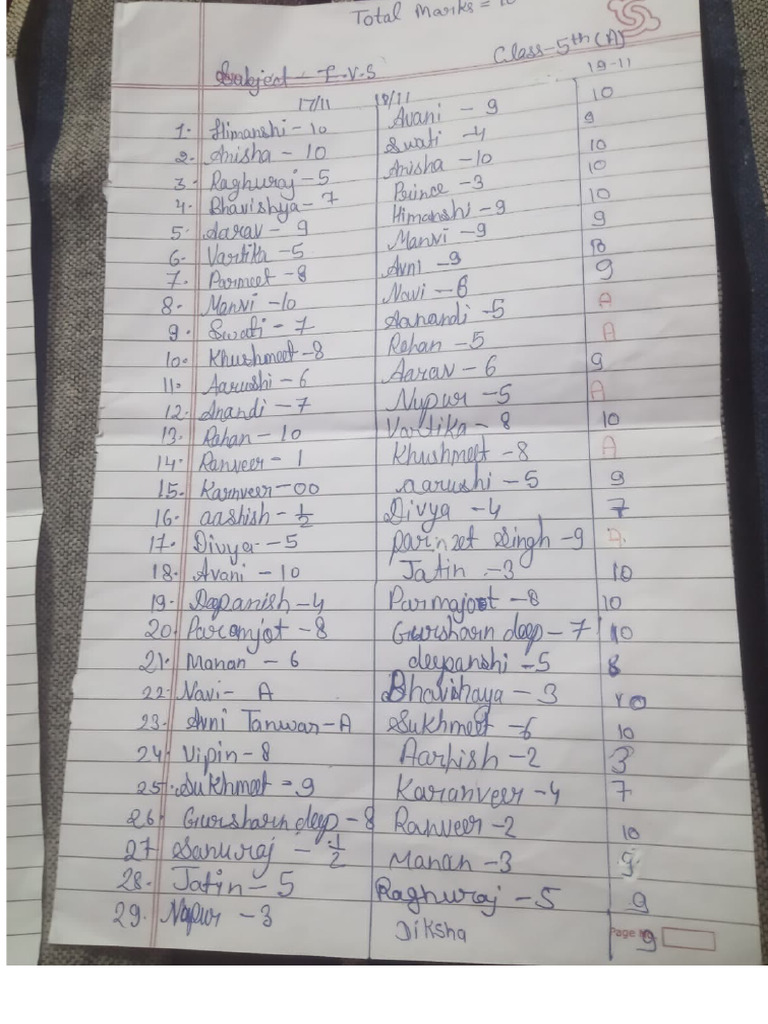 Total Marks = 10
Class-5th(A)
Subject - E.V.S
17/11 18/11 19-11
1. Himanshi - 10 Avani - 9 10
2. Anisha - 10 Swati - 4 9
3. Raghuraj - 5 Anisha - 10 10
4. Bhavishya - 7 Prince - 3 10
5. Aarav - 9 Himanshi - 9 10
6. Vartika - 5 Manvi - 9 9
7. Parmeet - 8 Avni - 9 10
8. Manvi - 10 Navi - 6 9
9. Swati - 7 Aanandi - 5 A
10. Khushmeet - 8 Rehan - 5 A
11. Aarushi - 6 Aarav - 6 9
12. Anandi - 7 Nupur - 5 A
13. Rehan - 10 Vartika - 8 10
14. Ranveer - 1 Khushmeet - 8 A
15. Karnveer - 00 aarushi - 5 9
16. aashish - 1/2 Divya - 4 7
17. Divya - 5 Singh - 9 A
18. Avani - 10 Jatin - 3 10
19. Depanish - 4 Parmajot - 8 10
20. Paramjot - 8 Gursharn deep - 7 10
21. Manan - 6 deepanshi - 5 8
22. Navi - A Bhavishaya - 3 10
23. Avni Tanwar - A Sukhmeet - 6 10
24. Vipin - 8 - 2 3
25. Sukhmeet = 9 Karanveer - 4 7
26. Gursharn deep - 8 Ranveer - 2 10
27. Sanuraj - 1/2 Manan - 3 9
28. Jatin - 5 Raghuraj - 5 9
29. Nupur - 3 Diksha 9
Page No.